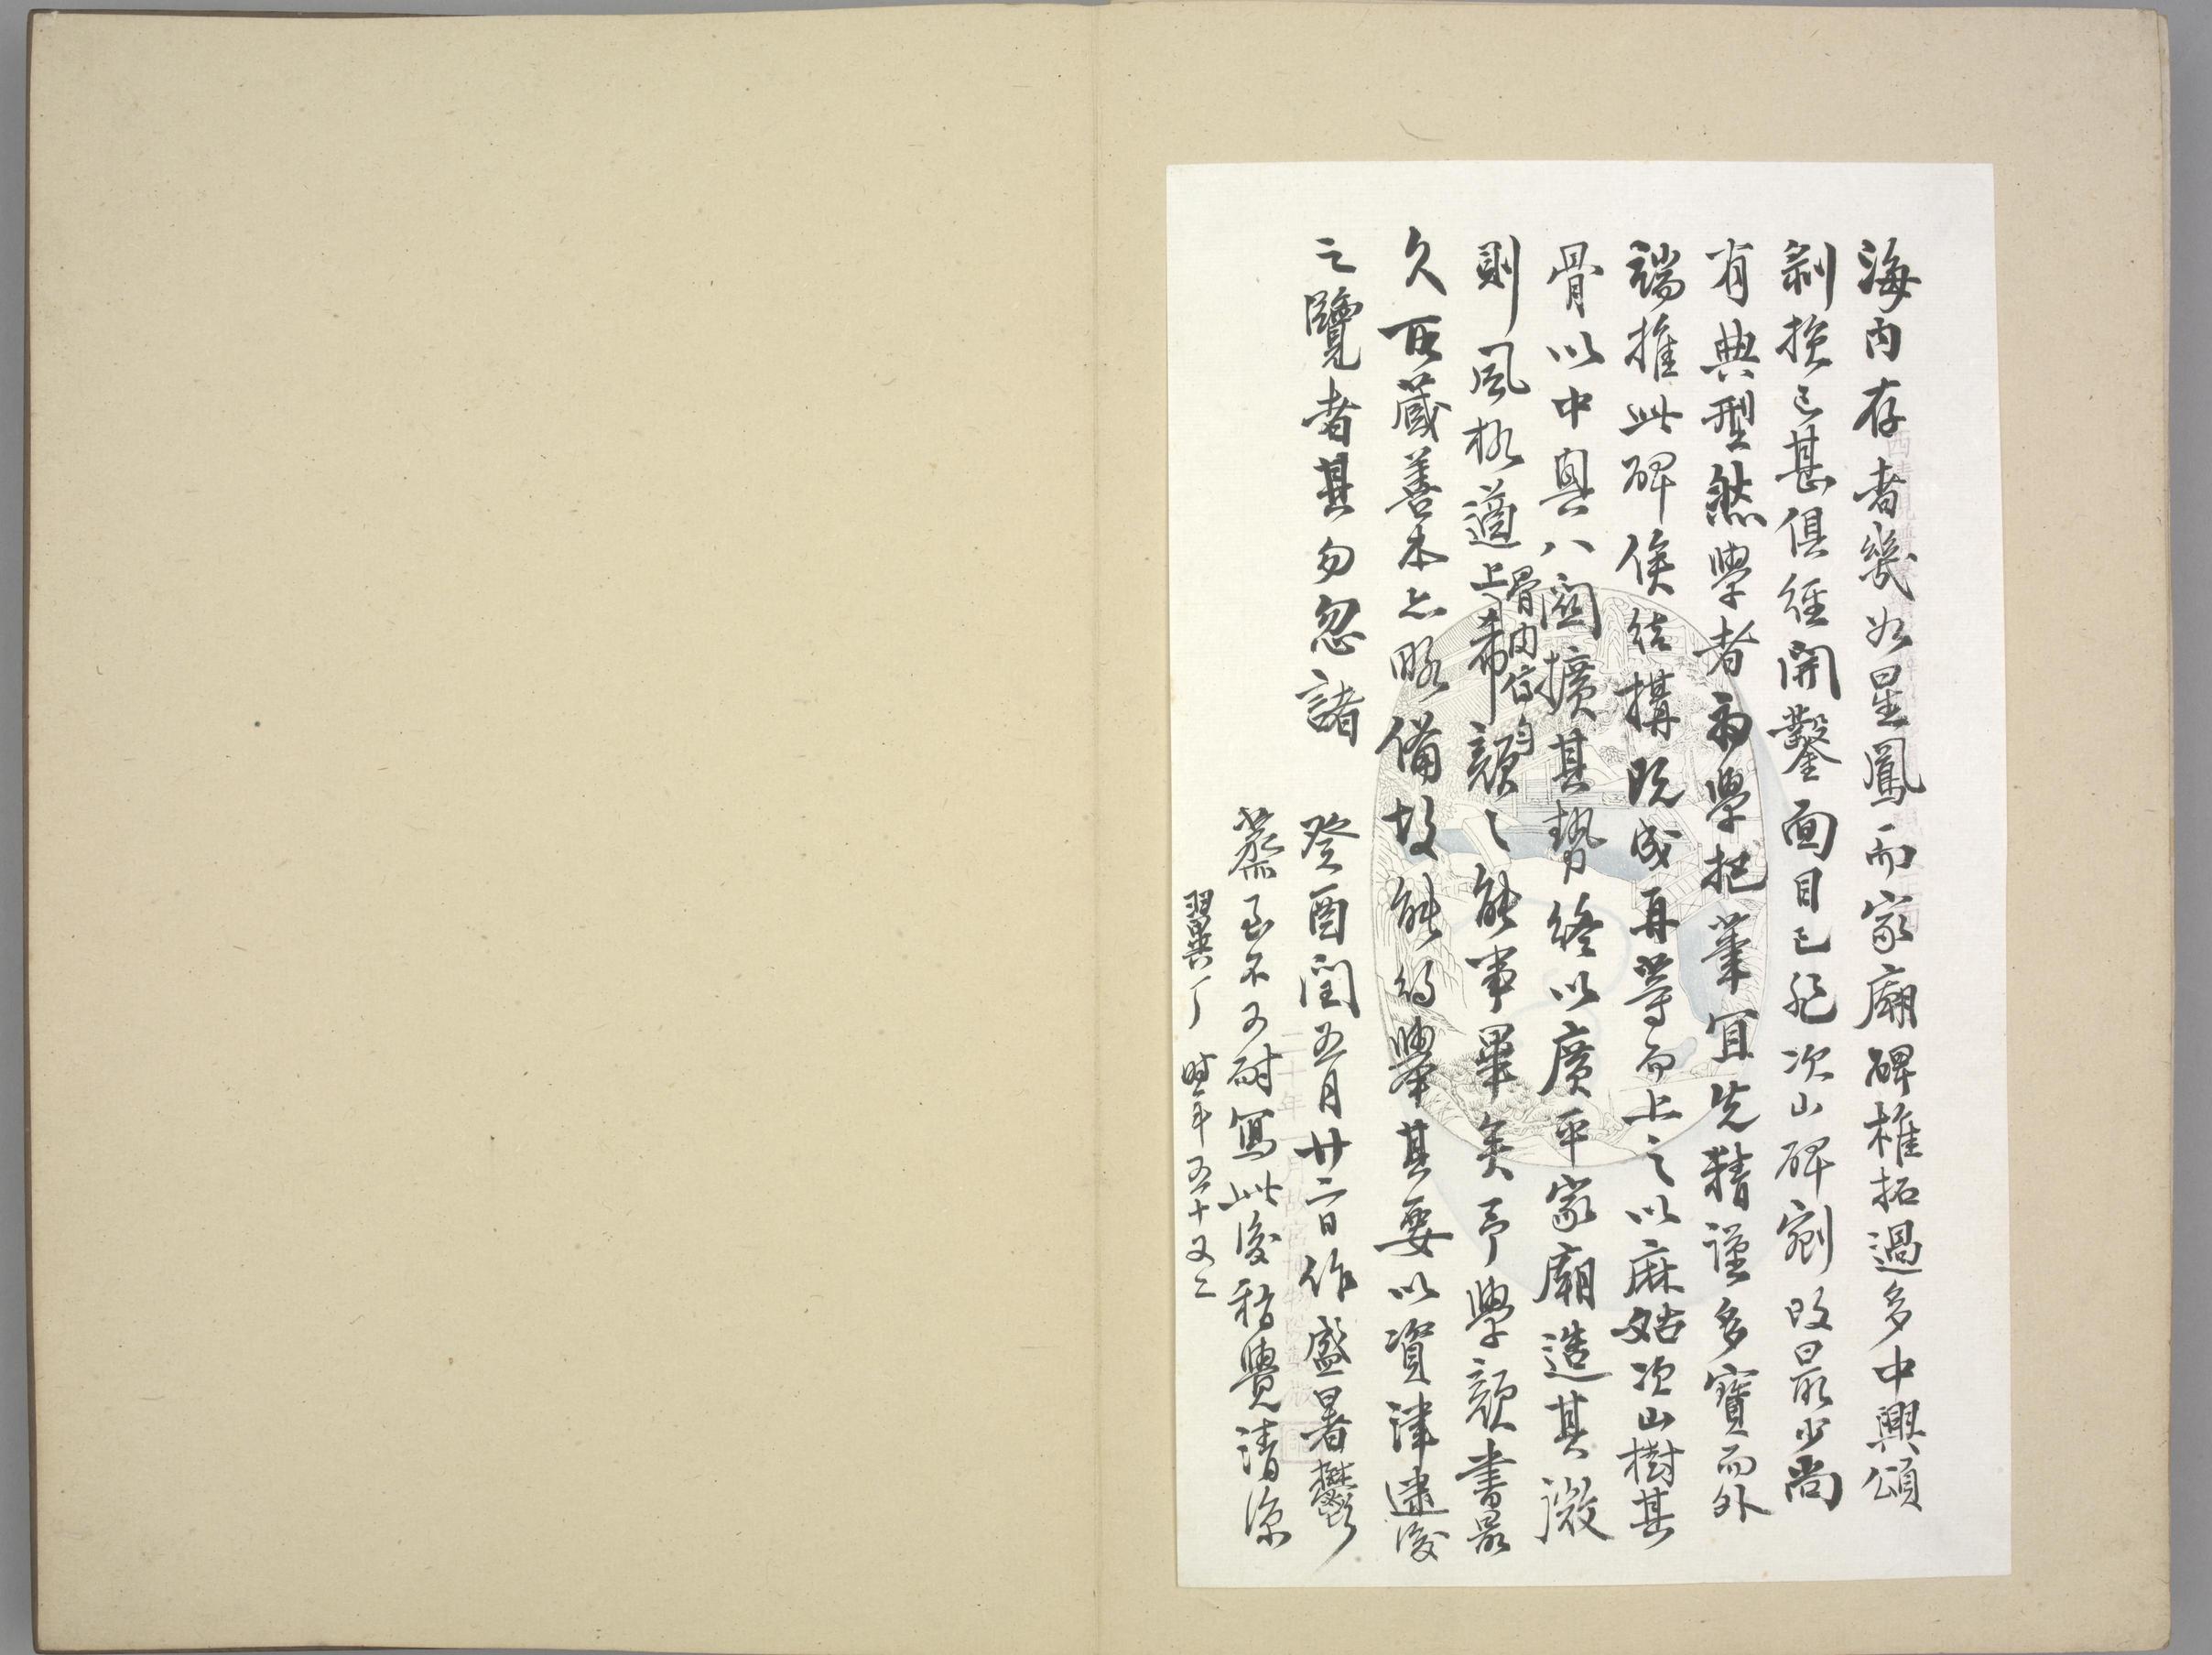 海内存者幾如星鳳而家廟碑椎拓過多中興頌
剝損已甚俱經開鑿面目已非次山碑剜改最少尚
有典型然學者初學把筆宜先精謹多寶而外
端推此碑俟結構既成再等而上之以麻姑次山樹其
骨以中興八關擴其勢終以廣平家廟造其微
則風格遒上骨肉停勻希顏之能事畢矣予學顏書最
久所藏善本亦略備故能約舉其要以資津逮後
之覽者其勿忽諸
癸酉閏五月廿二日作盛暑鬱
蒸至不可耐寫此後稍覺清涼
翼厂 時年五十又三